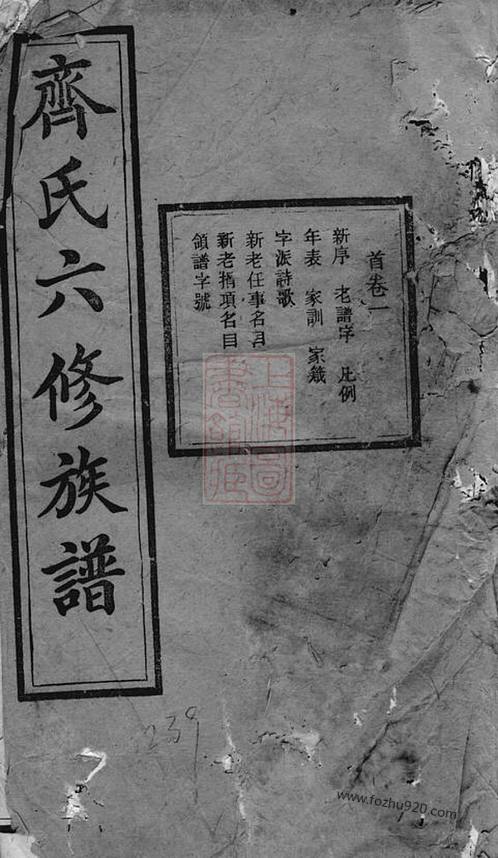 齊氏六修族譜
首卷一
新序 老譜序 凡例
年表 家訓 家箴
字派詩歌
新老任事名目
新老捐項名目
領譜字號
上海圖書館藏
239
www.fozhu920.com